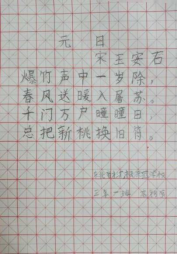 元日
宋王安石
爆竹声中一岁除，
春风送暖入屠苏。
千门万户曈曈日，
总把新桃换旧符。